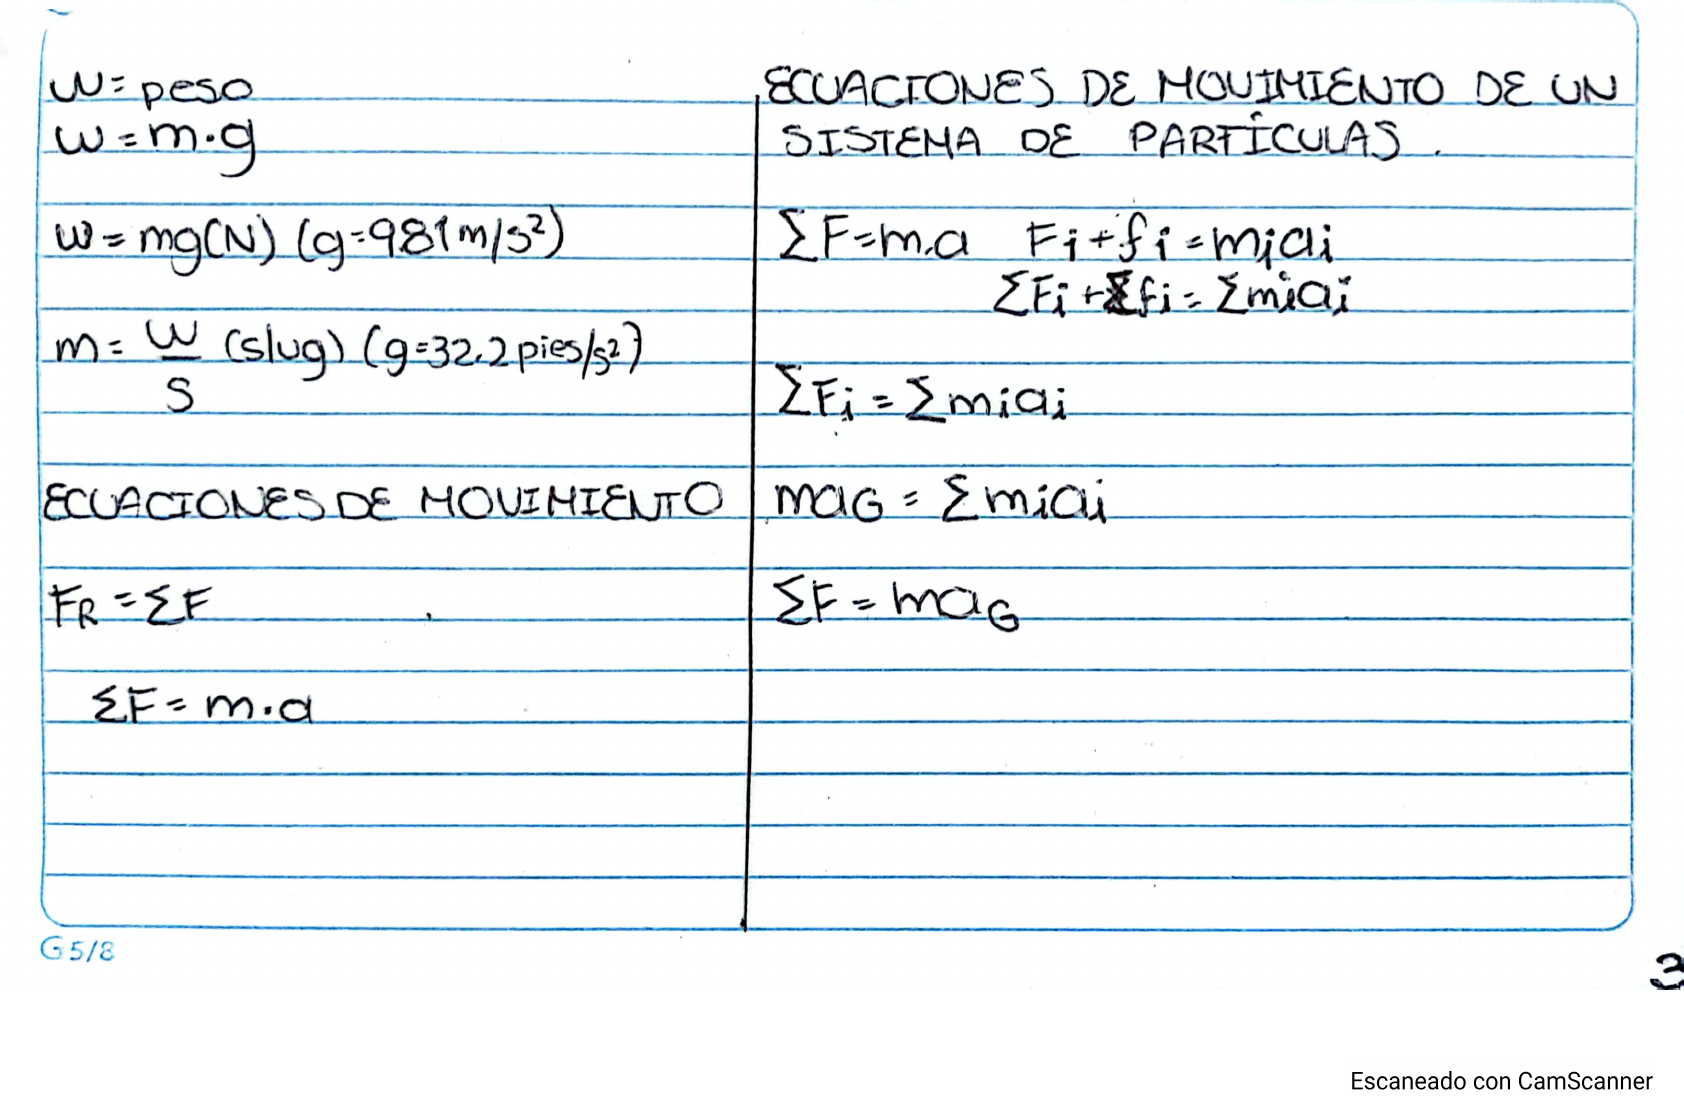 W = peso
W = m·g
W = mg(N) (g=981 m/s²)
m = W/S (slug) (g=32.2 pies/s²)
ECUACIONES DE MOVIMIENTO
FR = ΣF
ΣF = m·a
ECUACIONES DE MOVIMIENTO DE UN
SISTEMA DE PARTÍCULAS.
ΣF=m.a Fi+fi = miai
ΣFi + Σfi = Σmiai
ΣFi = Σmiai
maG = Σmiai
ΣF = maG
G5/8
3
Escaneado con CamScanner